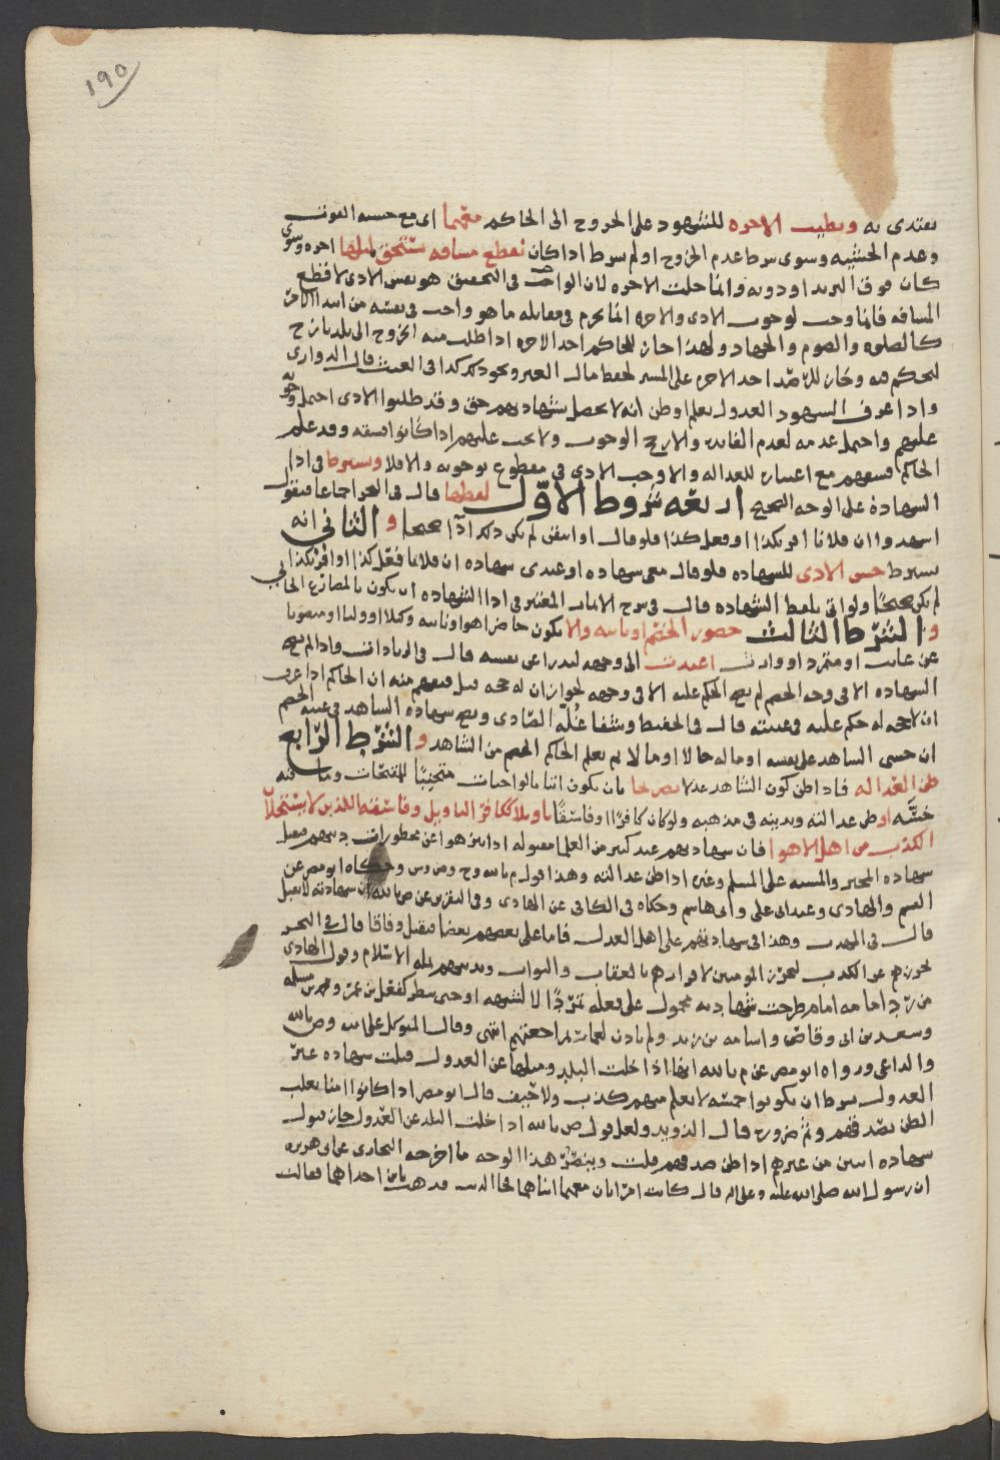 ١٩٥
يعتدى به ويطيب الاجره للشهود على الخروج الى الحاكم معهما اى مع خشيه الفوت
وعدم الخشيه وسوى شرط عدم الخروج او لم يشرط اذا كان لقطع مسافه يستحق لمثلها اجره وسوى
كان فوق البريد او دونه وانما حلت الاجره لان الواجب فى التحقيق هو نفس الادى لا قطع
المسافه فانما وجب لوجوب الادى والاجره انما تحرم فى مقابله ما هو واجب فى نفسه من
كالصلوه والصوم والجهاد ولهذا جاز للحاكم اخذ الاجره اذا طلب منه الخروج الى بلد نازح
ليحكم فيه وجاز للرصد اخذ الاجره على المسير لحفظ مال الغير ونحو ذلك كذا فى الغيث قال الدوارى
واذا عرف الشهود العدول بعلم او ظن انه لا يحصل بشهادتهم حق وقد طلبوا الادى احتمل وجوبه
عليهم واحتمل عدمه لعدم الفائده والارجح الوجوب ولا يجب عليهم اذا كانوا فسقه وقد علم
الحاكم فسقهم مع اعتبار للعداله والا وجب الادى فى مقطوع بوجوبه والا فلا ويشترط فى ادا
الشهادة على الوجه الصحيح اربعه شروط الاول لفظها قال فى البحر اجماعا فيقول
اشهد وا ان فلانا اقر بكذا او فعل كذا فلو قال او اتيقن لم يكن ذلك ادآ صحيحا و الثانى انه
يشترط حسن الادى للشهاده فلو قال معى شهاده او عندى شهاده ان فلانا فعل كذا او اقر بكذا
لم يكن صحيحا ولو اتى بلفظ الشهاده قال فى شرح الاثمار المعتبر فى ادا الشهاده ان يكون بالمضارع الحالى
و الشرط الثالث حضور الخصم او نايبه والا يكون حاضرا هو او نايبه وكيلا او وليا او منصوبا
عن غايب او متمرد او وارث اعيدت الى وجهه ليدرا عن نفسه قال فى الزيادات واذا لم تصح
الشهاده الا فى وجه الخصم لم يصح الحكم عليه الا فى وجهه لجواز ان له حجه قيل فيفهم منه ان الحاكم اذا عرف
ان لا حجه له حكم عليه فى غيبته قال فى الحفيظ وشفا غله الصادى ويصح شهاده الشاهد فى غيبه الخصم
ان خشى الشاهد على نفسه او ماله حالا او مالا ثم يعلم الحاكم الخصم من الشاهد و الشرط الرابع
ظن العداله فاذا ظن كون الشاهد عدلا تصريحا بان يكون اتيا بالواجبات مجتنبا للمقبحات وما فيه
خسه او ظن عدالته وتدينه فى مذهبه ولو كان كافرا او فاسقا تاويلا ككافر التاويل وفاسقه اللذين لا يستحلا
الكذب من اهل الاهوا فان شهادتهم عند كثير من العلما مقبوله اذا تنزهوا عن محظورات دينهم فتقبل
شهاده المجبر والمشبه على المسلم وغيره اذا ظن عدالته وهذا قول م بالله وح وص وش وحكاه ابو مضر عن
القسم والهادى وعند ابى على وابى هاشم وحكاه فى الكافى عن الهادى وفى التقرير عن ص بالله ان شهادته لا تقبل
قال فى المهذب وهذا فى شهادتهم على اهل العدل فاما على بعضهم بعضا فيقبل وفاقا قال فى البحر
لتحرزهم عن الكذب كتحرز المومنين لاقرارهم بالعقاب والثواب وتدينهم بمله الاسلام وقول الهادى
من رد امامه امام طرحت شهادته محمول على فعله تمردا لا لشبهه او حتى ينظر كفعل بن عمر ومحمد بن مسلمه
وسعد بن ابى وقاص واسامه بن زيد ولم ياذن لعمار بمراجعتهم انتهى وقال المتوكل على الله وص بالله
والداعى ورواه ابو مضر عن م بالله ايضا اذا خلت البلد ومثلها عن العدول قبلت شهاده غير
العدول بشرط ان يكونوا خمسه لا يعلم منهم كذب ولا حيف قال ابو مضر اذا كانوا امنا يغلب
الظن بصدقهم وثم ضروره قال الذويد ولعل قول ص بالله اذا خلت البلد عن العدول جاز قبول
شهاده اثنين من غيرهم اذا ظن صدقهم قلت وينصر هذا الوجه ما اخرجه البخارى عن ابى هريره
ان رسول الله صلى الله عليه وعلى اله قال كانت امراتان معهما ابناهما فجا الذيب فذهب بابن احداهما فقالت